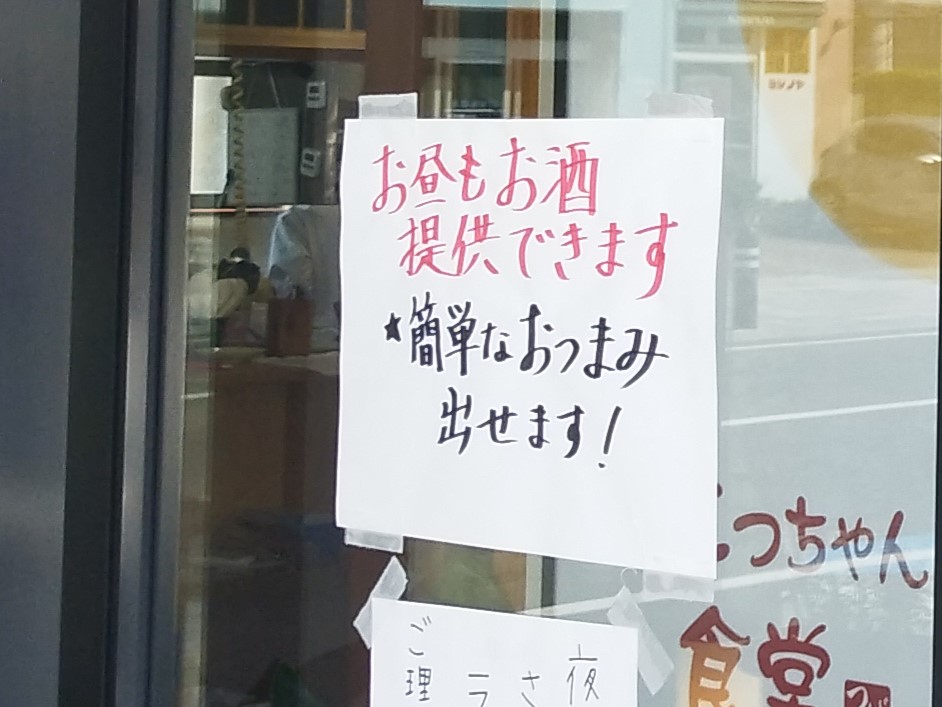 お昼もお酒
提供できます
★簡単なおつまみ
出せます!
つちゃん
食堂
夜
さ
ラ
ご理